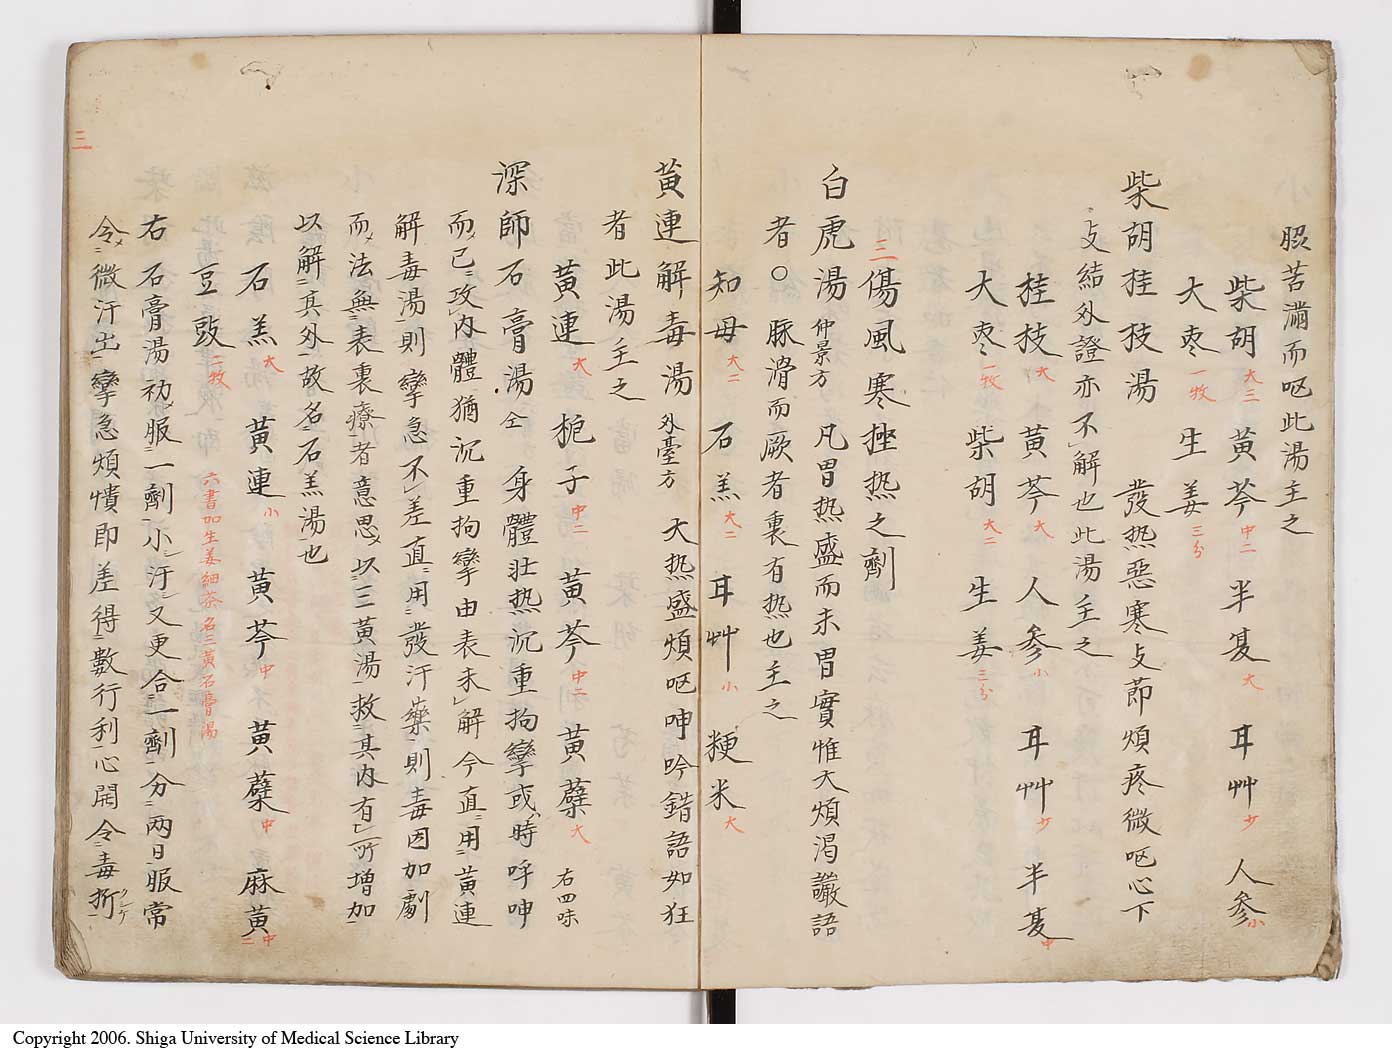 腹苦滿而呕此湯主之
柴胡大三 黃芩中二 半夏大 耳艸少 人参小
大枣一牧 生姜三分
柴胡桂枝湯 發热惡寒支莭煩疼微呕心下
支結外證亦不解也此湯主之
桂枝大 黃芩大 人参小 耳艸少 半夏中
大枣一牧 柴胡大二 生姜三分
三 傷風寒挫热之劑
白虎湯仲景方 凡胃热盛而未胃實惟大煩渴讝語
者○脉滑而厥者裏有热也主之
知母大二 石羔大二 耳艸小 粳米大
黃連解毒湯外臺方 大热盛煩呕呻吟錯語如狂
者此湯主之
黃連大 梔子中二 黃芩中二 黃蘗大 右四味
深師石膏湯仝 身體壯热沉重拘攣或時呼呻
而已攻内體猶沉重拘攣由表未解今直用黃連
解毒湯則攣急不差直用發汗藥則毒因加劇
而法無表裏療者意思以三黃湯救其内有所增加
以解其外故名石羔湯也
石羔大 黃連小 黃芩中 黃蘗中 麻黃中二
豆豉二牧 六書加生姜細茶名三黃石膏湯
右石膏湯初服一劑小汗又更合一劑分兩日服常
令微汗出攣急煩憒即差得數行利心開令毒折クシケ
三
Copyright 2006. Shiga University of Medical Science Library